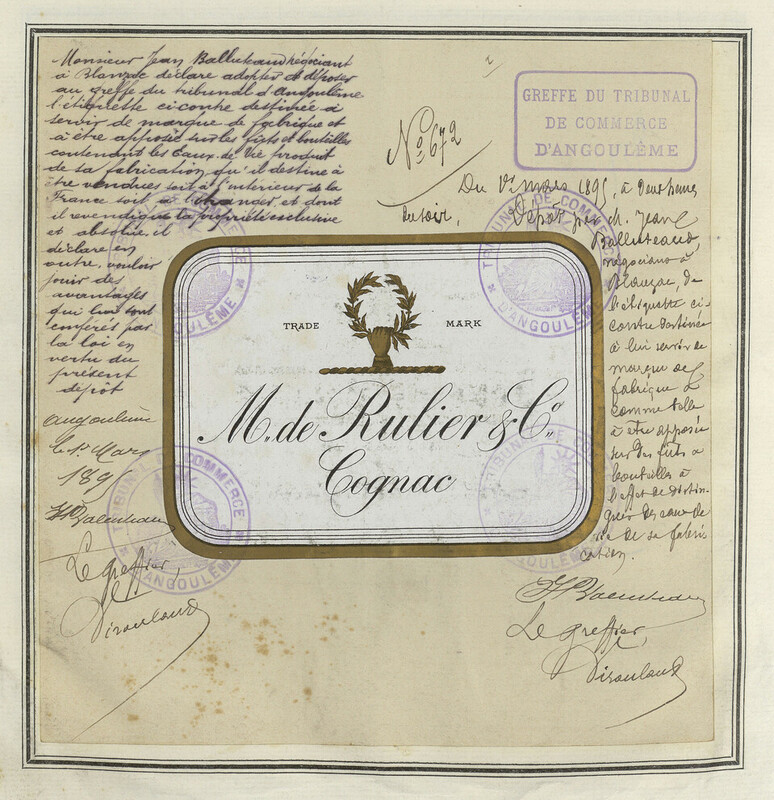 Monsieur Jean Balluteaud négociant
à Blanzac déclare adopter et déposer
au greffe du tribunal d'Angoulême
l'étiquette ci contre destinée à
servir de marque de fabrique et
à être apposée sur les fûts et bouteilles
contenant les Eaux de Vie produit
de sa fabrication qu'il destine à
être vendues soit à l'intérieur de la
France soit à l'étranger, et dont
il revendique la propriété exclusive
et absolue, il
déclare en
outre, vouloir
jouir des
avantages
qui lui sont
conférés par
la loi en
vertu du
présent
dépôt
Angoulême
le 1er Mars
189
Le greffier,
N° 672
GREFFE DU TRIBUNAL
DE COMMERCE
D'ANGOULÊME
Du 1er mars 1895, à deux heures
du soir, Dépôt par M. Jean
Balluteaud,
négociant à
Blanzac, de
l'étiquette ci-
contre destinée
à lui servir de
marque de
fabrique &
comme telle
à être apposée
sur des fûts &
bouteilles à
l'effet de distin-
guer des eaux de
vie de sa fabri-
cation.
Le greffier,
TRADE MARK
M. de Rulier & Co.
Cognac
TRIBUNAL DE COMMERCE
D'ANGOULÊME
TRIBUNAL DE COMMERCE
D'ANGOULÊME
TRIBUNAL DE COMMERCE
D'ANGOULÊME
TRIBUNAL DE COMMERCE
D'ANGOULÊME